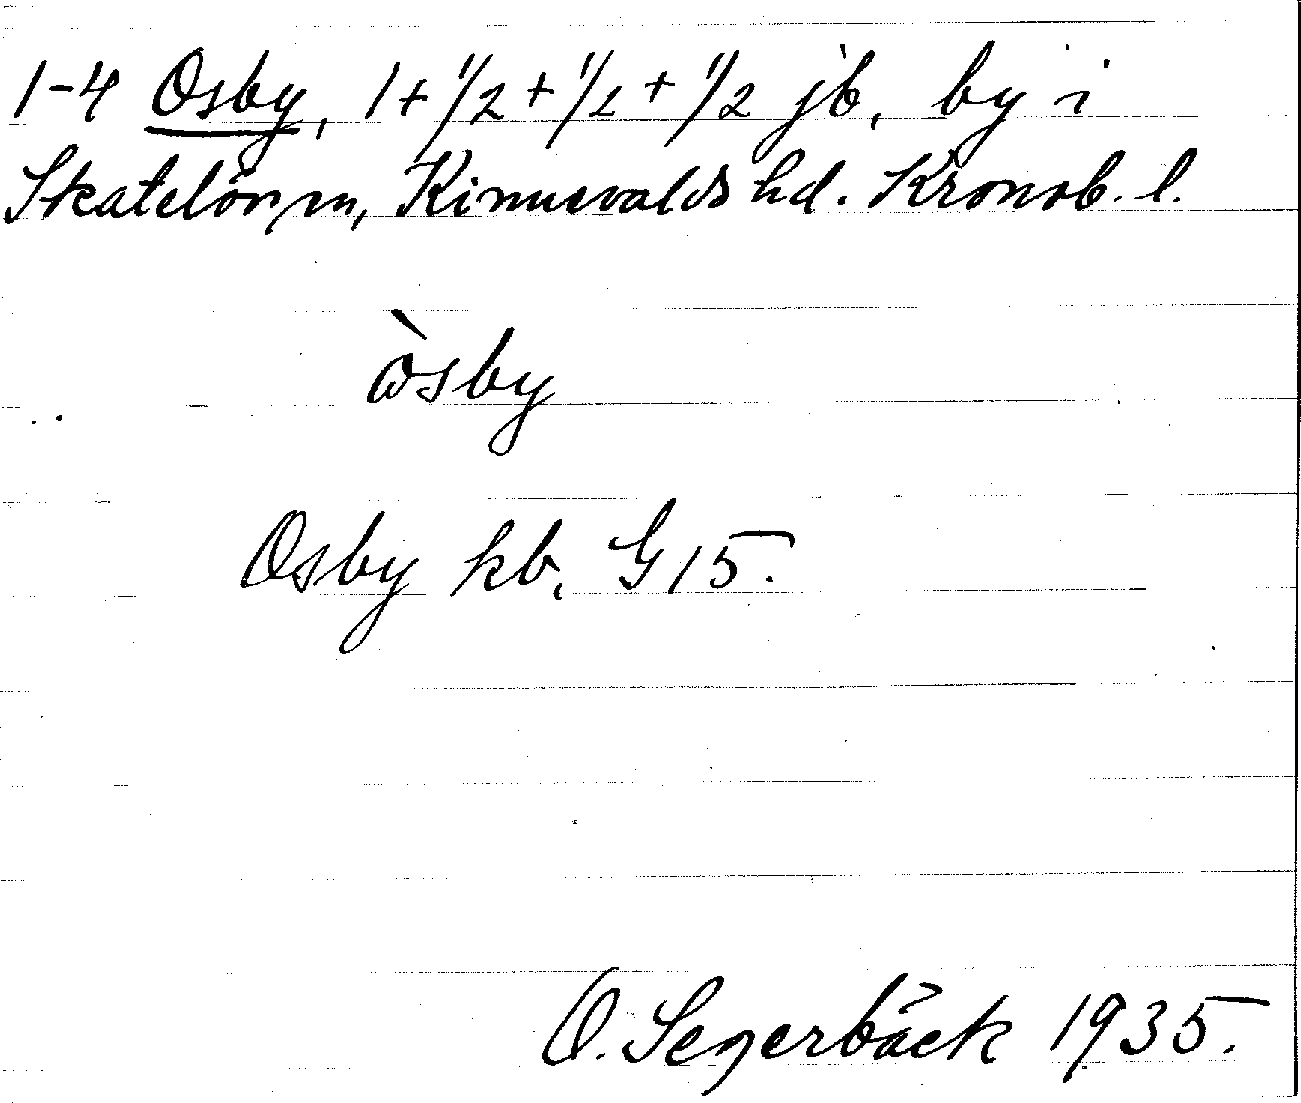 1-4 Osby, 1+1/2+1/2+1/2 jb. by i
Skatelövs sn, Kinnevalds hd. Kronob. l.
òsby
Osby kb. G 15.
O. Segerbäck 1935.